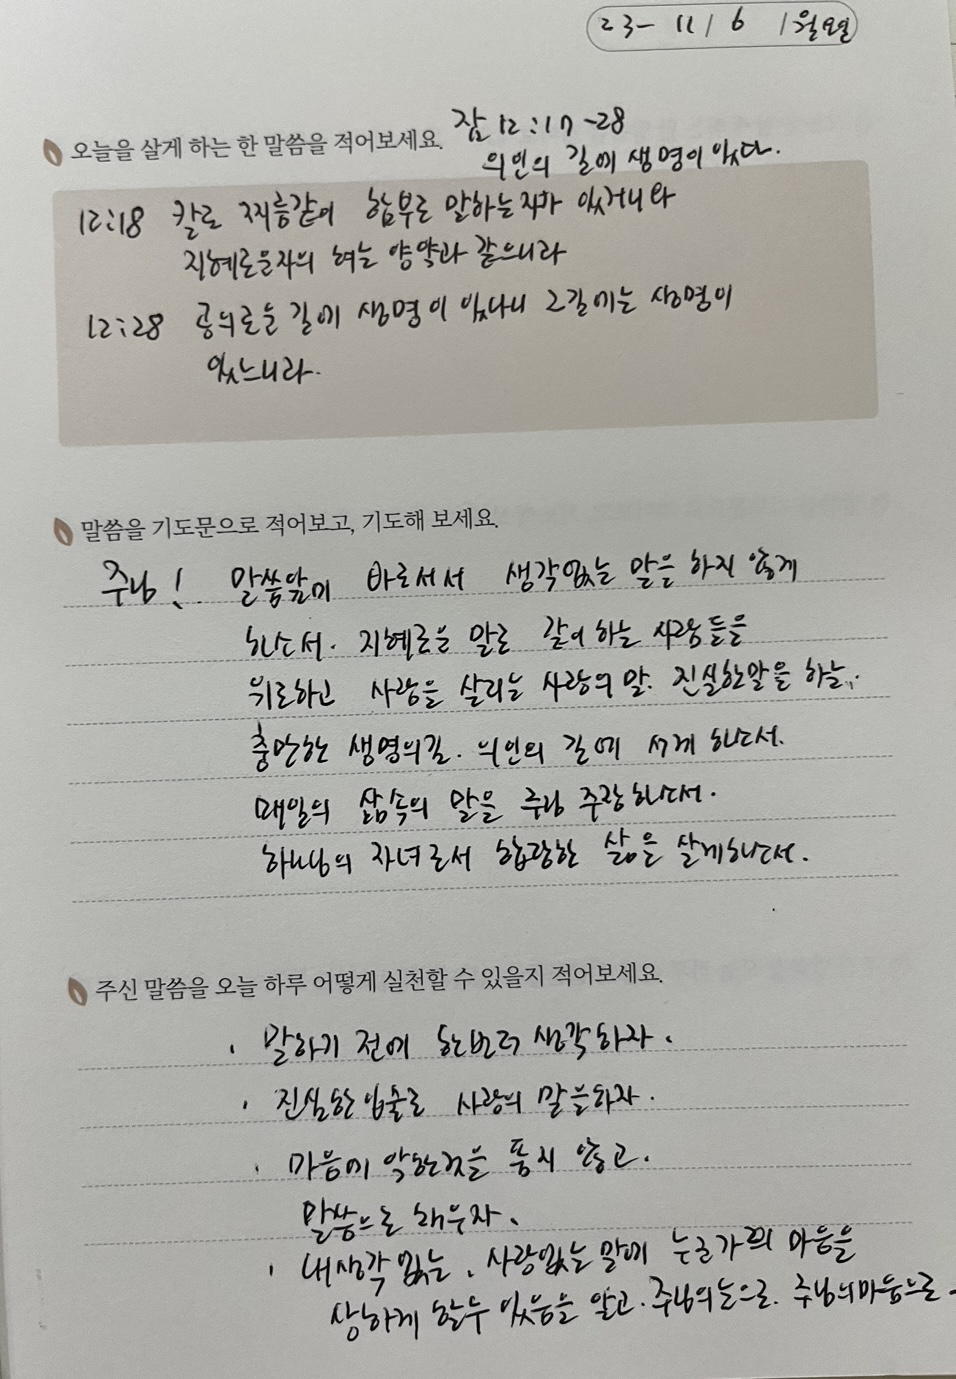 23- 11/6 /월요일
오늘을 살게 하는 한 말씀을 적어보세요. 잠 12:17-28
의인의 길에 생명이 있다.
12:18 칼로 찌름같이 함부로 말하는자가 있거니와
지혜로운자의 혀는 양약과 같으니라
12:28 공의로운 길에 생명이 있나니 그길에는 생명이
있느니라.
말씀을 기도문으로 적어보고, 기도해 보세요.
주님! 말씀앞에 바로서서 생각없는 말을 하지 않게
하소서. 지혜로운 말로 같이하는 사람들을
위로하고 사람을 살리는 사랑의 말. 진실한말을 하는.
충만한 생명의길. 의인의 길에 서게 하소서.
매일의 삶속의 말을 주님 주장하소서.
하나님의 자녀로서 합당한 삶을 살게하소서.
주신 말씀을 오늘 하루 어떻게 실천할 수 있을지 적어보세요.
· 말하기 전에 한번더 생각하자.
· 진실한 입술로 사랑의 말을하자.
· 마음에 악한것을 품지 않고.
말씀으로 채우자.
· 내생각없는, 사랑없는 말에 누군가의 마음을
상하게 할수 있음을 알고. 주님의눈으로. 주님의마음으로